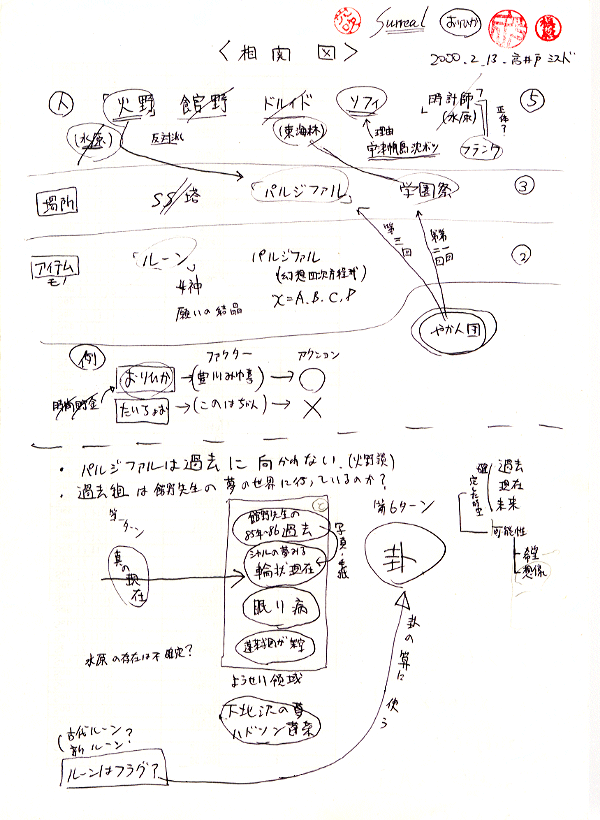 Surreal おりひか
<相関図>
2000.2.13.高井戸ミスド
人 火野 館野 ドルイド ソフィ 時計師? ⑤
(水原) 正体?
(水原) 反対派 (東海林) 理由 フランク
場所 SS塔 パルジファル 学園祭 ③
第三回
アイテム ルーン パルジファル ②
モノ 4神 (幻想四次方程式)
願いの結晶 x=A.B.C.D
やかん団
例 ファクター アクション
おりひか → (豊川みゆき) → ○
たいちょお → (このはちゃん) → ×
・パルジファルは過去に向かわない.(火野談)
・過去組は館野先生の夢の世界に行っているのか?
過去
現在
未来
可能性
希望
想像
第6ターン
卦
館野先生の
85年~86過去
シャルの夢みる
輪状現在
眠り病
真の現在
水原の存在は不確定?
ようせい領域
下北沢の夢
ハドソン
卦の算に使う
古代ルーン?
新ルーン?
ルーンはフラグ?